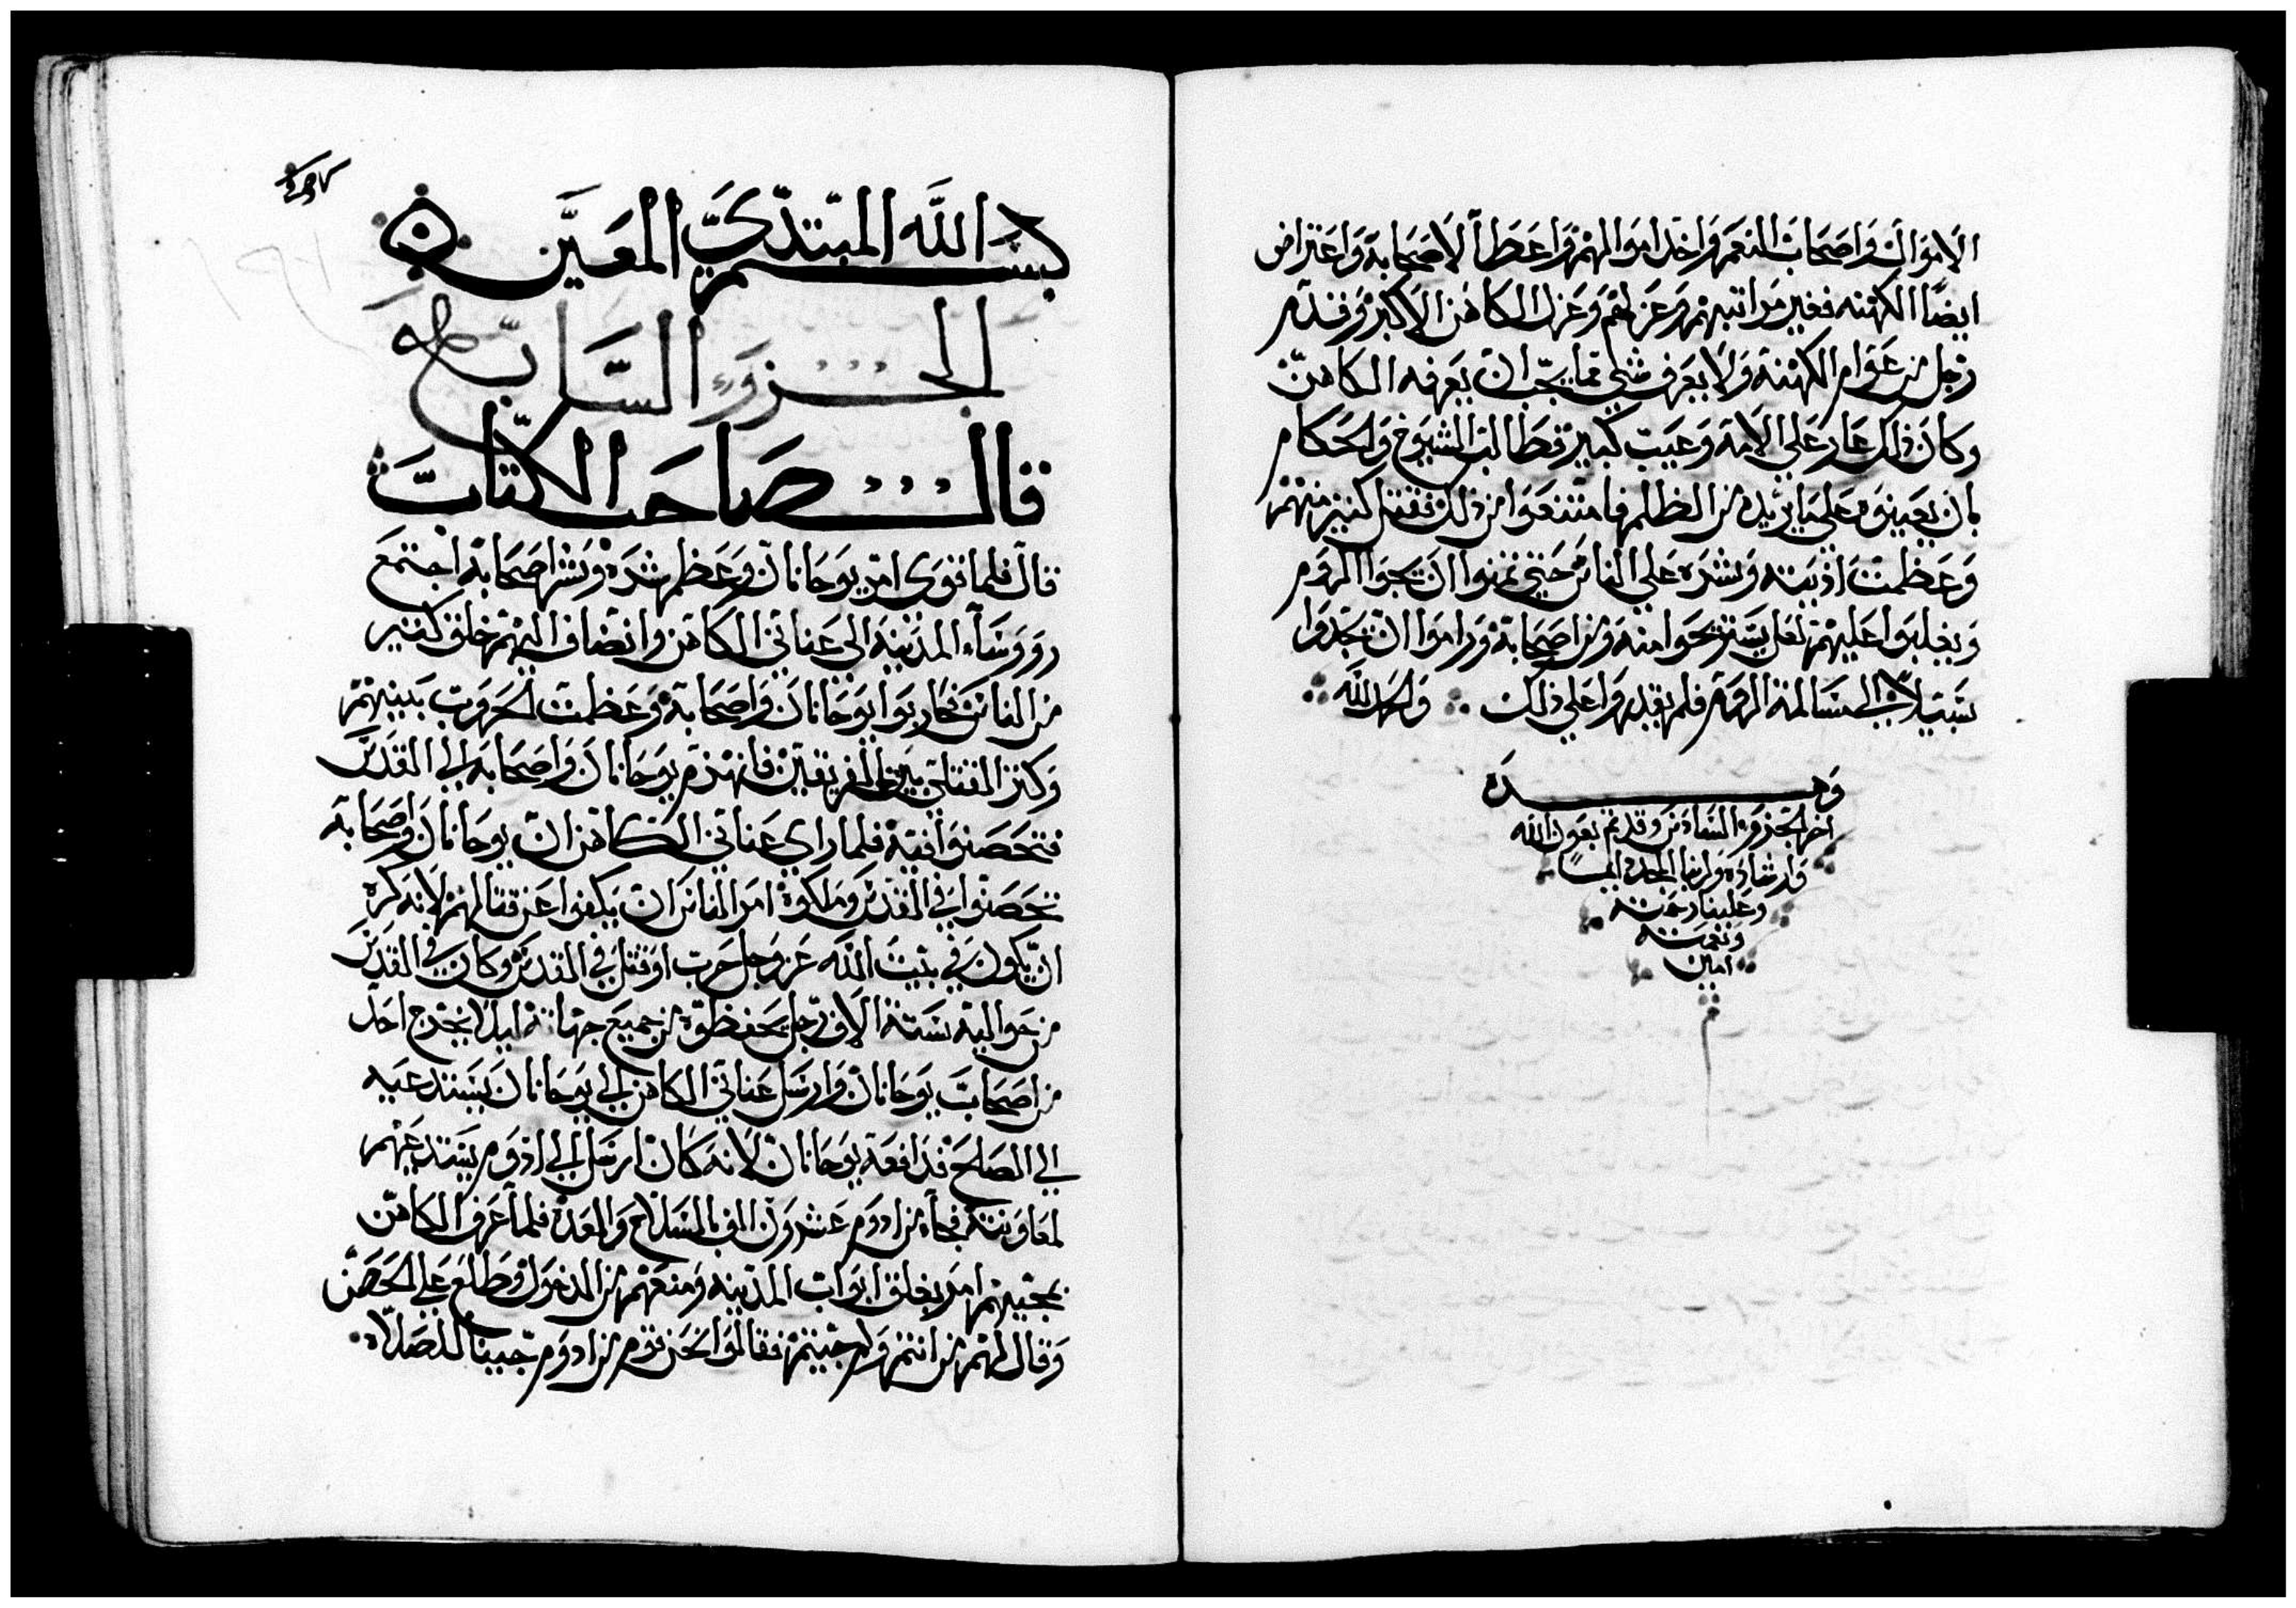 الاموال واصحاب النعم واخد اموالهم واعطا لاصحابه واعتراض
ايضا الكهنه فغير مراتبهم وعزلهم وعزل الكاهن الاكبر وقدم
رجل من عوام الكهنه ولا يعرف شي مما يجب ان يعرفه الكاهن
وكان ذلك عار علي الامه وعيب كبير وطالب الشيوخ والحكام
بان يعينوه علي ما يريده من الظلم فامتنعوا من ذلك فقتل كثير منهم
وعظمت اذيته وشره علي الناس حتي تمنوا ان يجوا الروم
ويغلبوا عليهم لعل يستريحوا منه ومن اصحابه وراموا ان يجدوا
سبيلا الي مسالمة الروم فلم يقدروا علي ذلك والحمد لله
وهده
اخر الجزوء السادس وقد تم بعون الله
وارشاده ولربنا المجد دايما
وعلينا رحمته
ونعمته
امين
بسم الله المبتدي المعين
الجزوء السابع
قال صاحب الكتاب
قال فلما قوي امر يوحانان وعظم شره وشر اصحابه اجتمع
روسآء المدينه الي عناني الكاهن وانضاف اليهم خلق كثير
من الناس فحاربوا يوحانان واصحابه وعظمت الحروب بينهم
وكثر القتلي بين الفريقين فانهزم يوحانان واصحابه الي القدس
فتحصنوا فيه فلما راي عناني الكاهن ان يوحانان واصحابه
تحصنوا في القدس وملكوه امر الناس ان يكفوا عن قتالهم لانه كره
ان يكون في بيت الله عز وجل حرب او قتل في القدس وكان في القدس
من حواليه ستة الاف رجل يحفظوه من جميع جهاته ليلا يخرج احد
من اصحاب يوحانان وارسل عناني الكاهن الي يوحانان يستدعيه
الي الصلح فدافعه يوحانان لانه كان ارسل الي ادوم يستدعيهم
لمعاونته فجآه من ادوم عشرون الف بالسلاح والعده فلما عرف الكاهن
بمجيهم امر بغلق ابواب المدينه ومنعهم من الدخول وطلع علي الحصن
وقال لهم من انتم ولم جيتم فقالوا نحن قوم من ادوم جيينا للصلاه